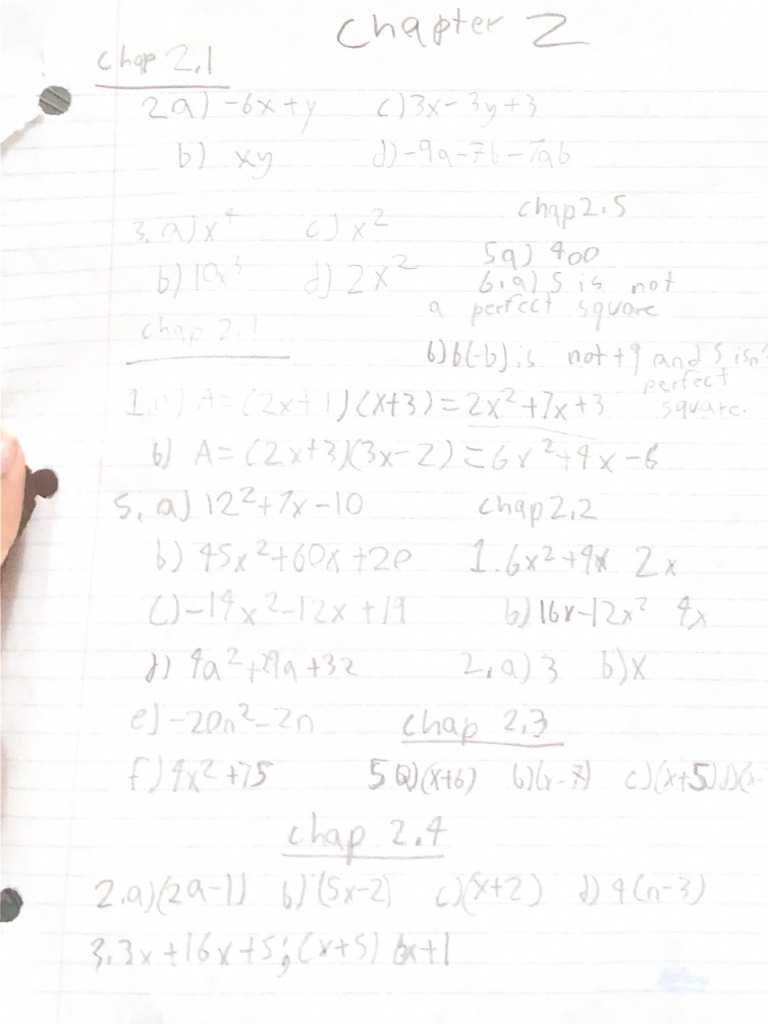 Chapter 2
Chap 2.1
2a) -6x+y c) 3x-3y+3
b) xy d) -9a-7b-7ab
3. a) x⁴ c) x²
b) 10x³ d) 2x²
chap 2.5
5a) 400
6. a) 5 is not
a perfect square
b) b(-b) is not +9 and 5 isn't
perfect
square.
chap 2.1
1. a) A=(2x+1)(x+3)=2x²+7x+3
b) A=(2x+3)(3x-2)=6x²+4x-6
5. a) 12²+7x-10
b) 45x²+60x+20
c) -14x²-12x+19
d) 4a²+29a+32
e) -20n²-2n
f) 4x²+75
chap 2.2
1. 6x²+4x 2x
b) 16x-12x² 4x
2. a) 3 b) x
chap 2.3
5a) (x+6) b) (x-7) c) (x+5) d) (x-
chap 2.4
2. a) (2a-1) b) (5x-2) c) (x+2) d) 4(n-3)
3. 3x+16x+5; (x+5) x+1